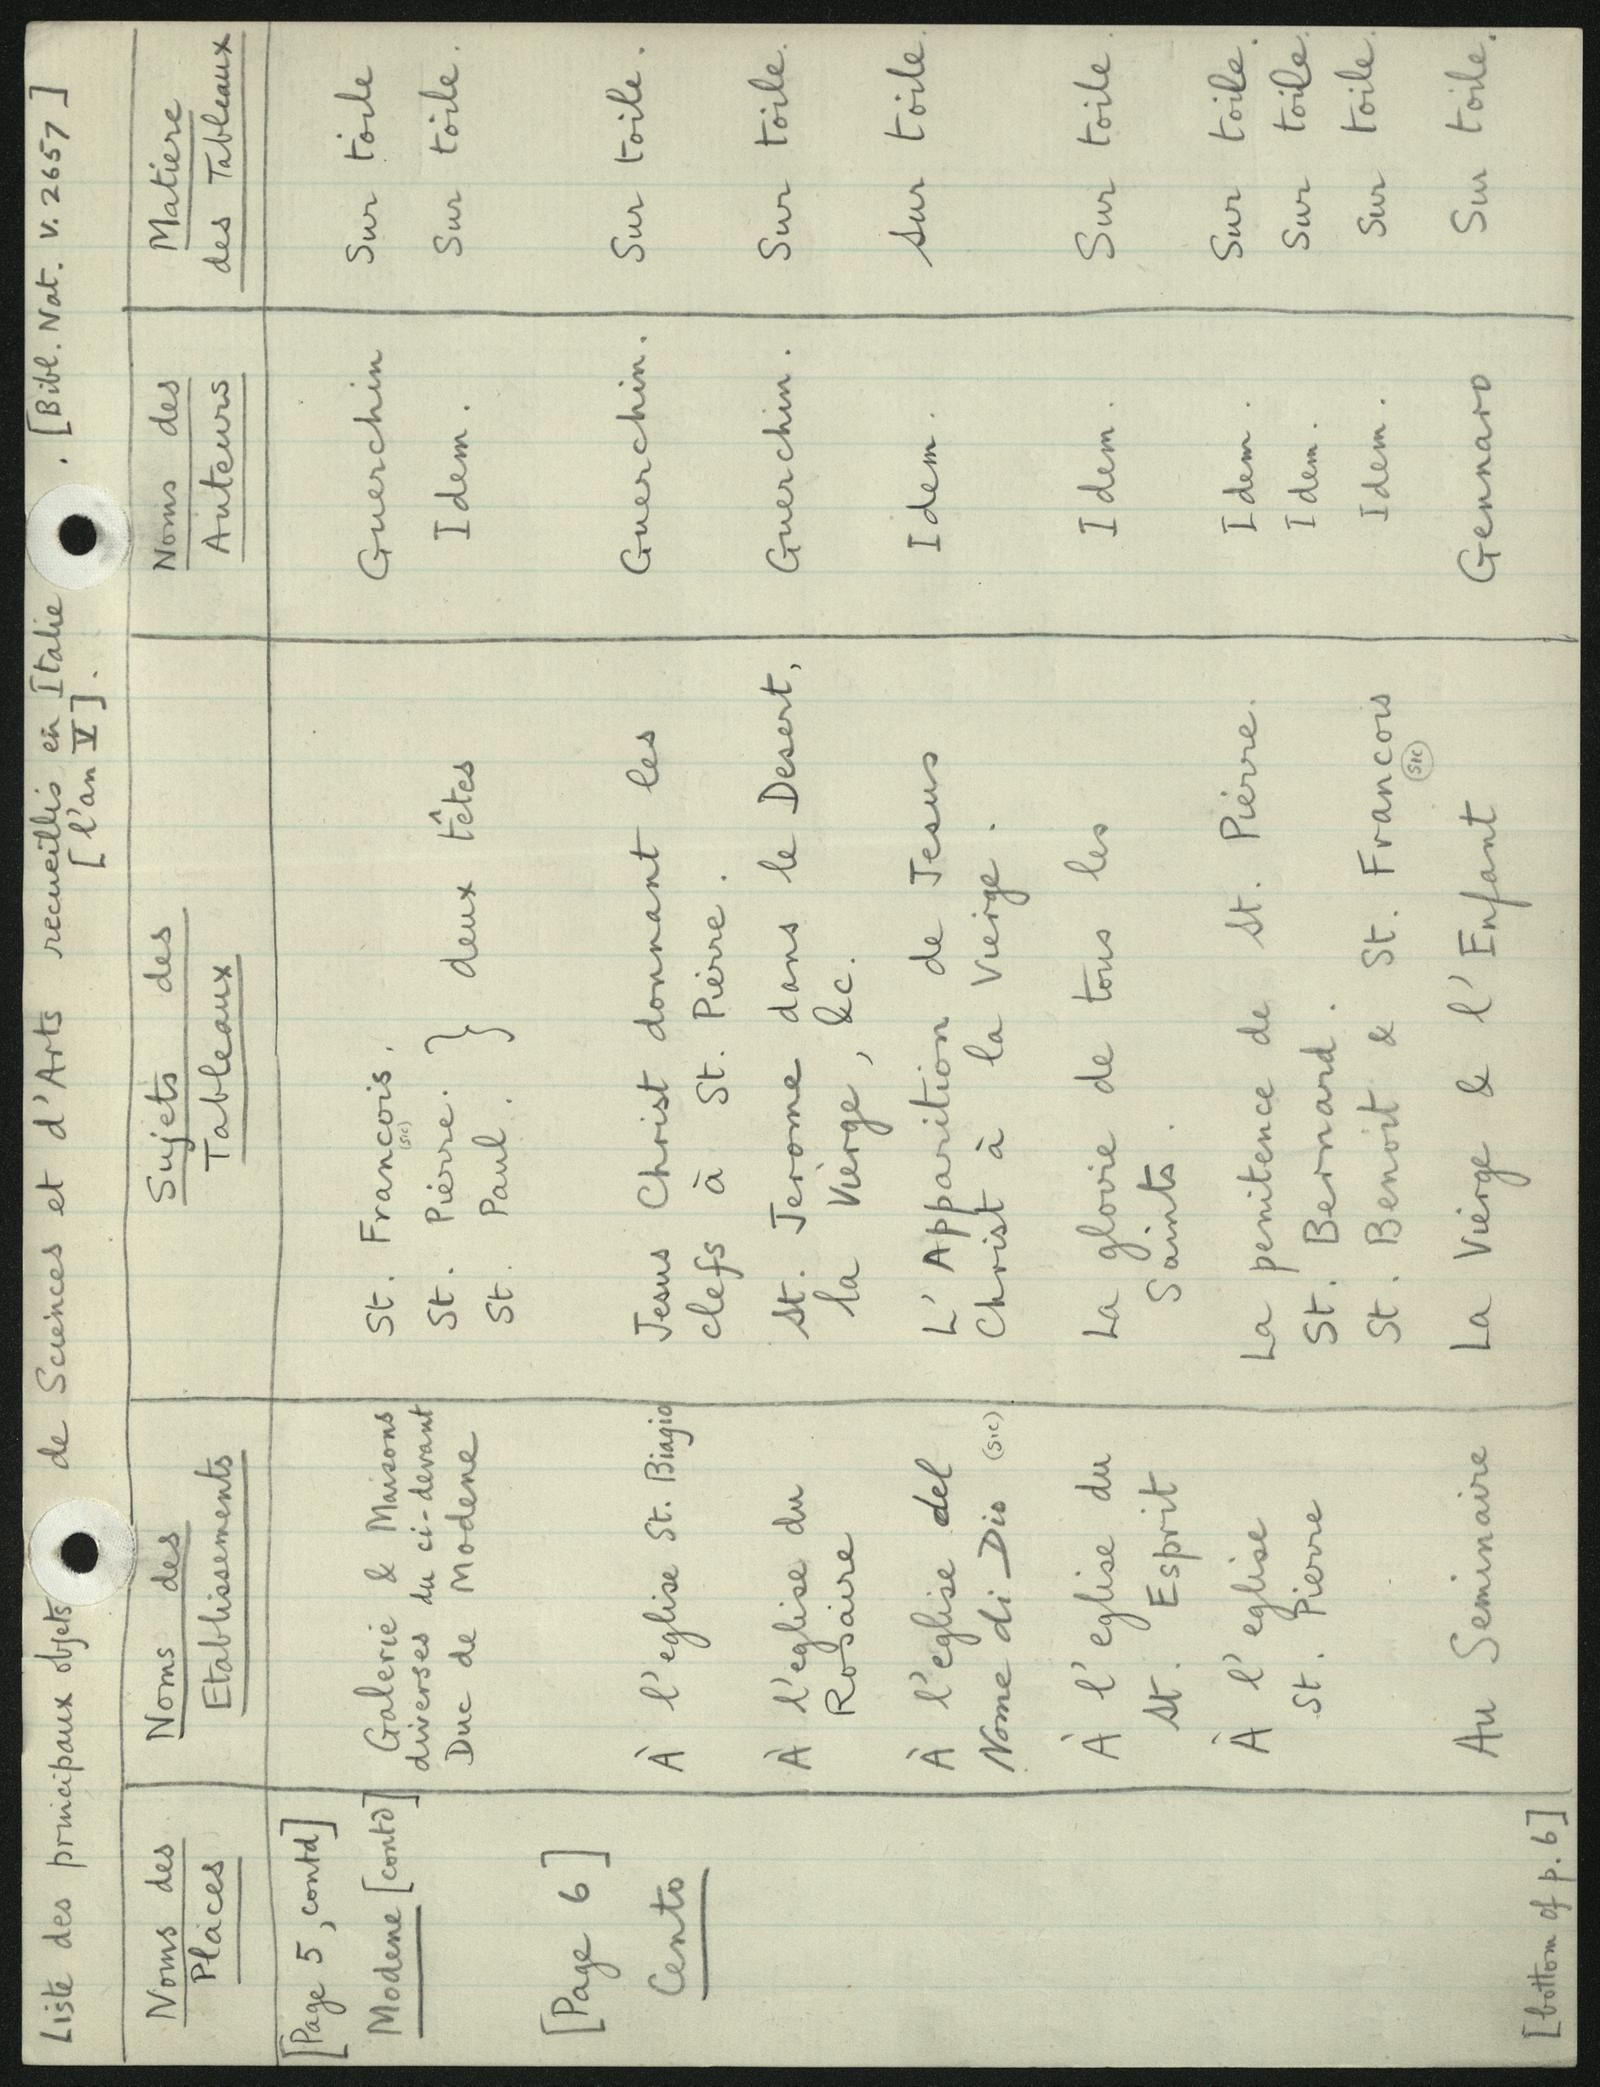 Liste des principaux objets de Sciences et d'Arts recueillis en Italie . [Bibl. Nat. V. 2657]
[l'an V].
Noms des Places
Noms des Etablissements
Sujets des Tableaux
Noms des Auteurs
Matiere des Tableaux
[Page 5, contd]
Modene [contd]
Galerie & Maisons
diverses du ci-devant
Duc de Modene
St. Francois. Guerchin Sur toile
(sic)
St. Pierre. } deux têtes Idem. Sur toile.
St. Paul.
[Page 6]
Cento
À l'eglise St. Biagio Jesus Christ donnant les Guerchin. Sur toile.
clefs à St. Pierre.
À l'eglise du St. Jerome dans le Desert, Guerchin. Sur toile.
Rosaire la Vierge, &c.
À l'eglise del L'Apparition de Jesus Idem. Sur toile.
Nome di Dio (sic) Christ à la Vierge.
À l'eglise du La gloire de tous les Idem. Sur toile.
St. Esprit Saints.
À l'eglise La penitence de St. Pierre. Idem. Sur toile.
St. Pierre St. Bernard. Idem. Sur toile.
St. Benoit & St. Francois Idem. Sur toile.
(sic)
Au Seminaire La Vierge & l'Enfant Gennaro Sur toile.
[bottom of p. 6]